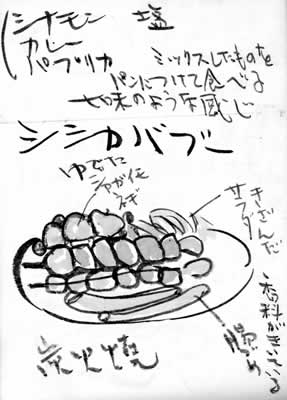 シナモン 塩
カレー
パプリカ
ミックスしたものを
パンにつけて食べる
七味のような感じ
シシカバブー
ゆでた
ジャガイモ
ネギ
きざんだ
サラダ
香料がきいている
腸づめ
炭火焼